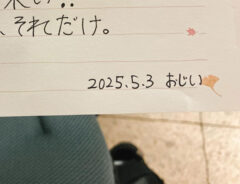 来い!!
、それだけ。
2025.5.3 おじい